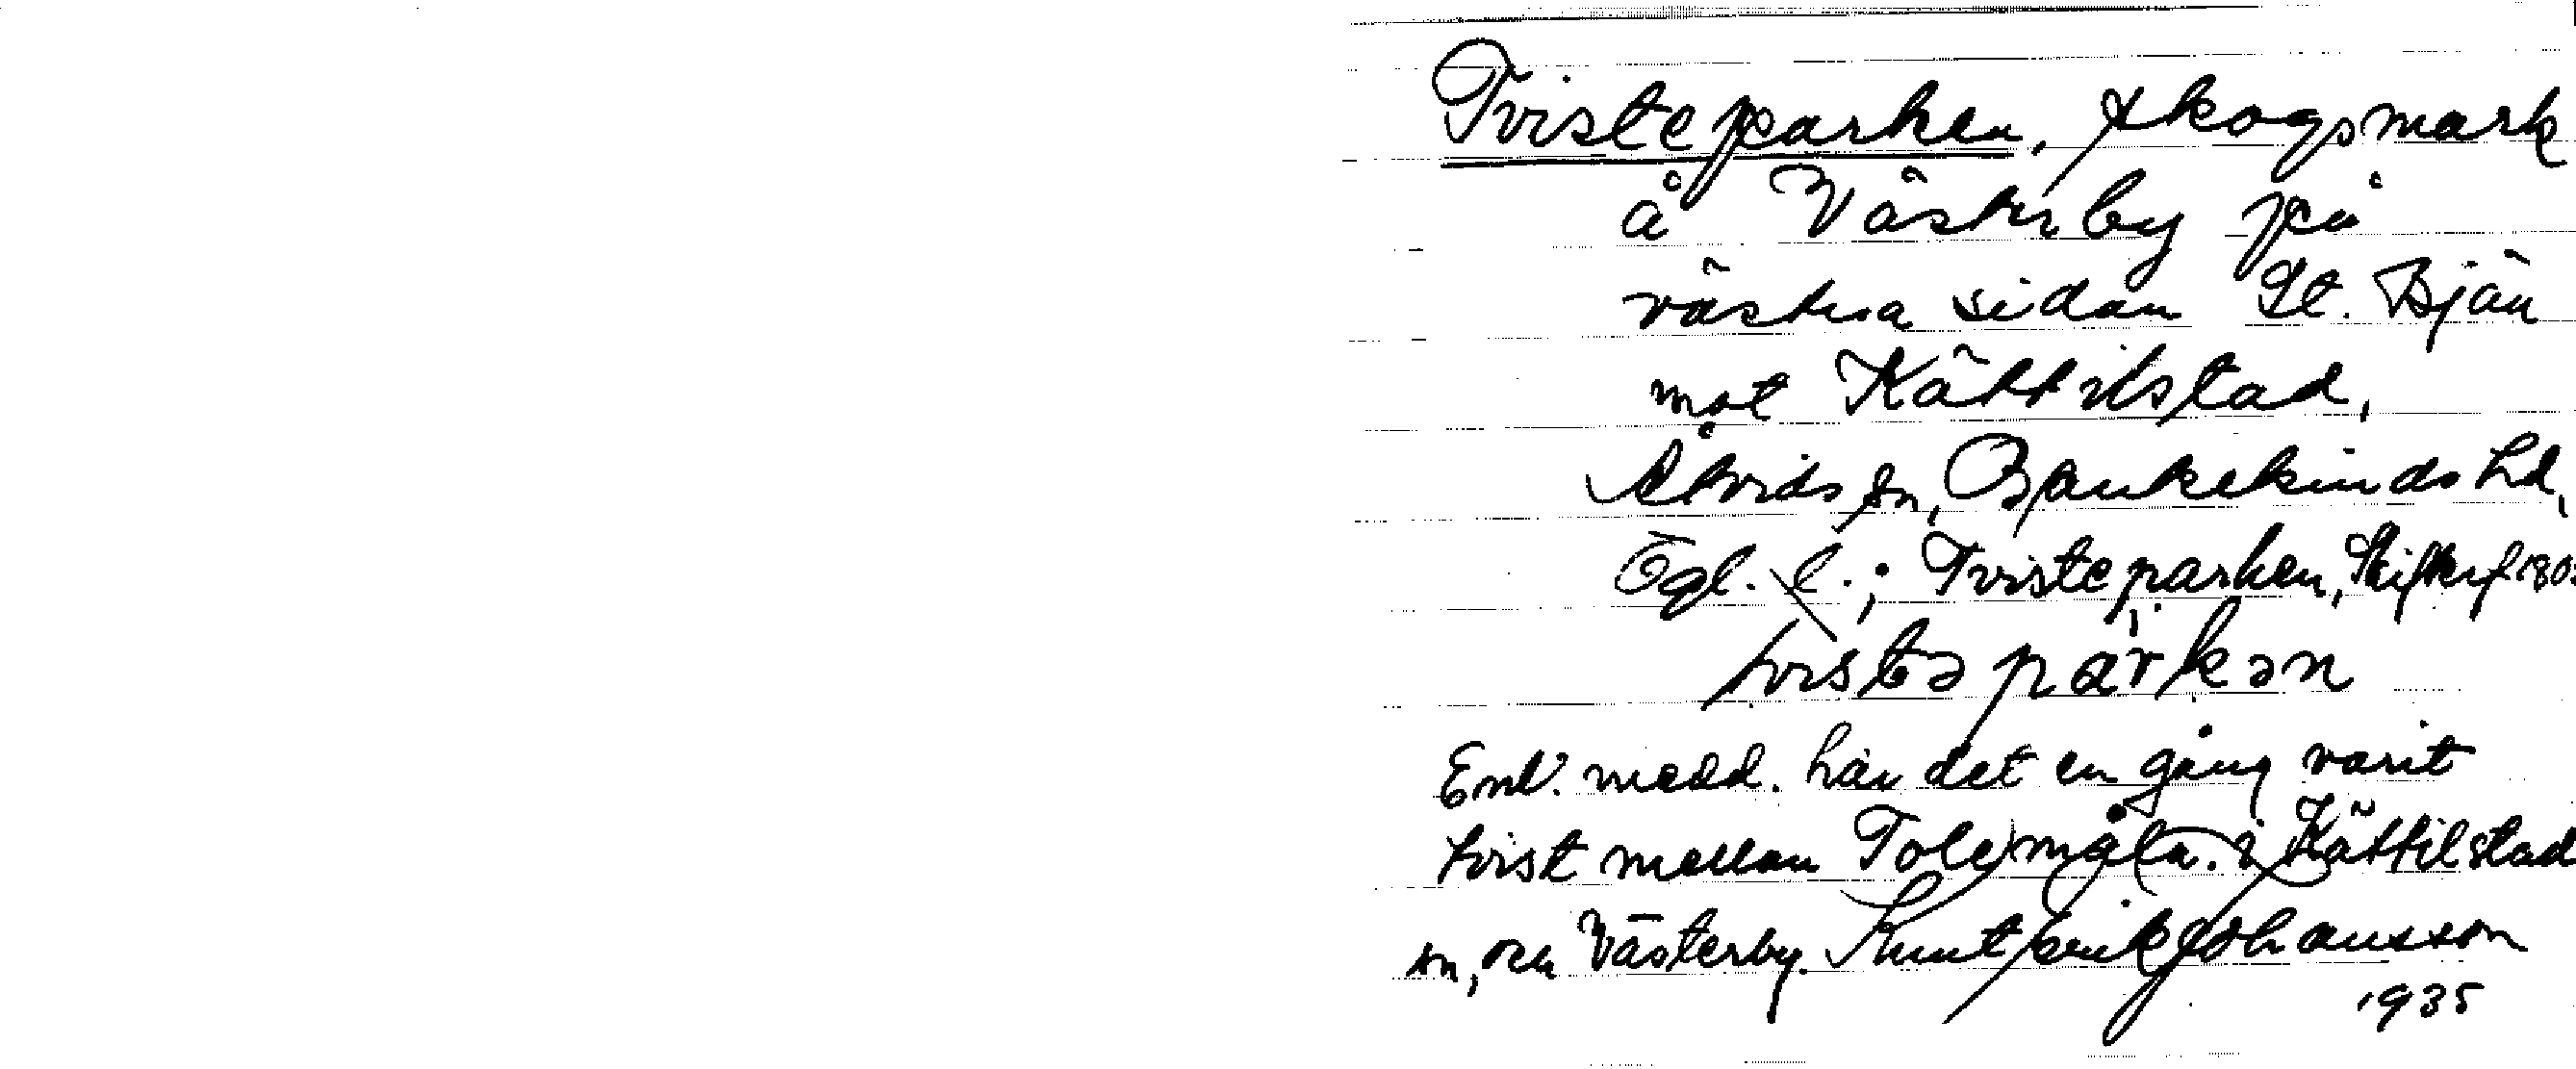 Tvisteparken, skogsmark
å Västerby på
västra sidan St. Bjän
mot Kättilstad,
Åtvids sn, Bankekinds hd,
Ögl. l.; Tvisteparken, Skifteskf 180
tvistə parkən
Enl. medd. har det en gång varit
tvist mellan Tolemåla i Kättilstad
sn, och Västerby. Knut Erik Johansson
1935